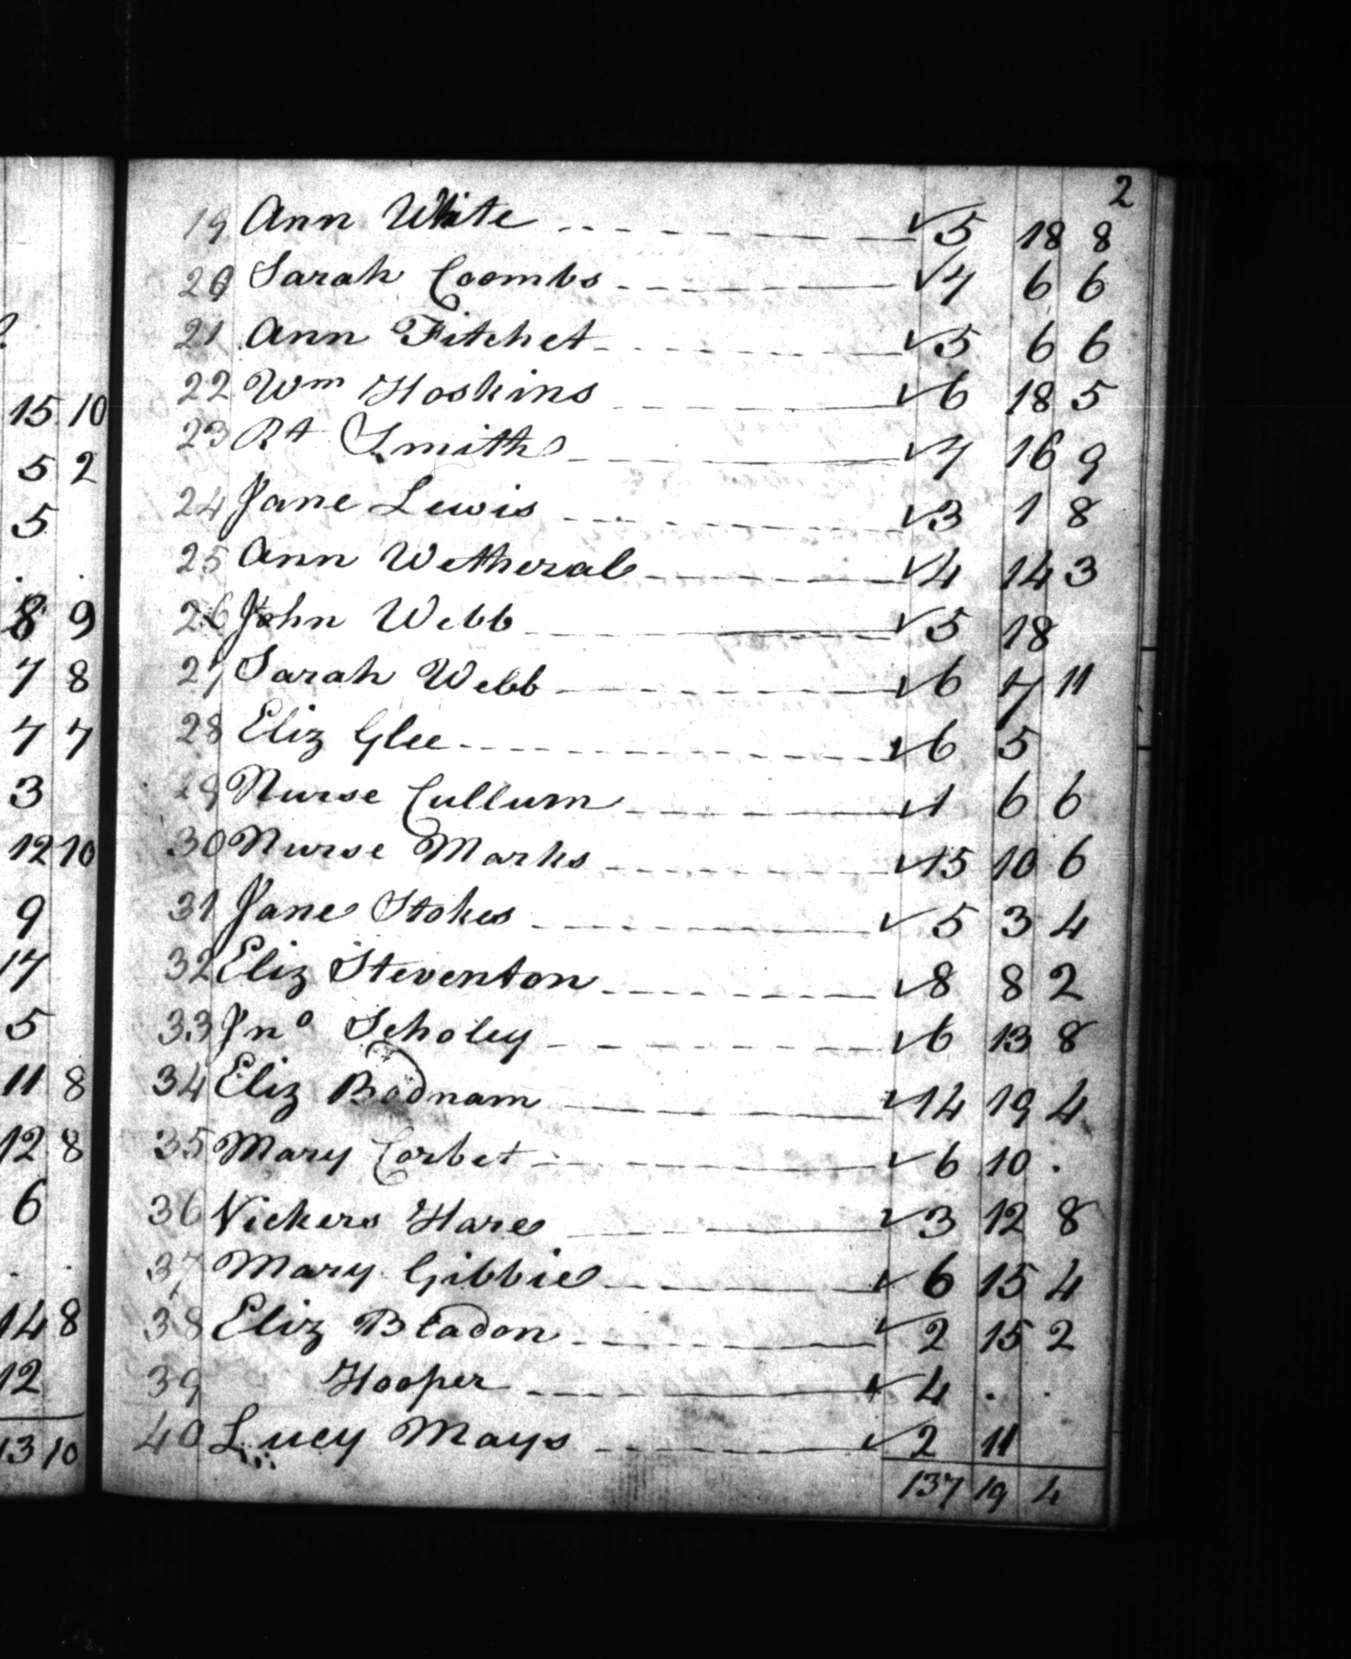 2
19 Ann White 5 18 8
20 Sarah Coombs 7 6 6
21 Ann Fitchet 5 6 6
22 Wm Hoskins 6 18 5
23 Rt Smith 7 16 9
24 Jane Lewis 3 1 8
25 Ann Wetheral 4 14 3
26 John Webb 5 18
27 Sarah Webb 6 7 11
28 Eliz Glee 6 5
29 Nurse Cullum 1 6 6
30 Nurse Marks 15 10 6
31 Jane Stokes 5 3 4
32 Eliz Steventon 8 8 2
33 Jno Scholey 6 13 8
34 Eliz Bodnam 14 19 4
35 Mary Corbet 6 10 .
36 Vickers Hare 3 12 8
37 Mary Gibbie 6 15 4
38 Eliz Bladon 2 15 2
39 Hooper 4 . .
40 Lucy Mays 2 11
137 19 4
15 10
5 2
5
8 9
7 8
7 7
3
12 10
9
17
5
11 8
12 8
6
14 8
12
13 10